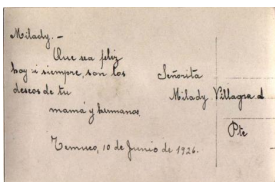 Milady. -
Que sea feliz
hoy i siempre, son los
deseos de tu
mamá y humanos
Temuco, 10 de Junio de 1926.
Señorita
Milady Villagra d
Pte